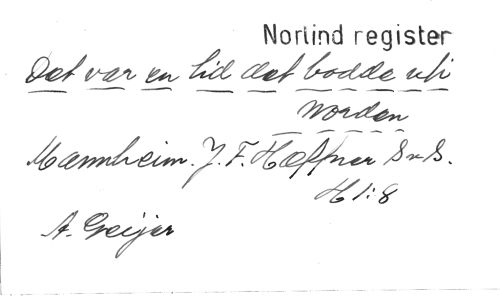 Norlind register
Det var en tid det bodde uti
Norden
Mannheim. J. F. Hæffner SvS.
H 1:8
A. Geijer